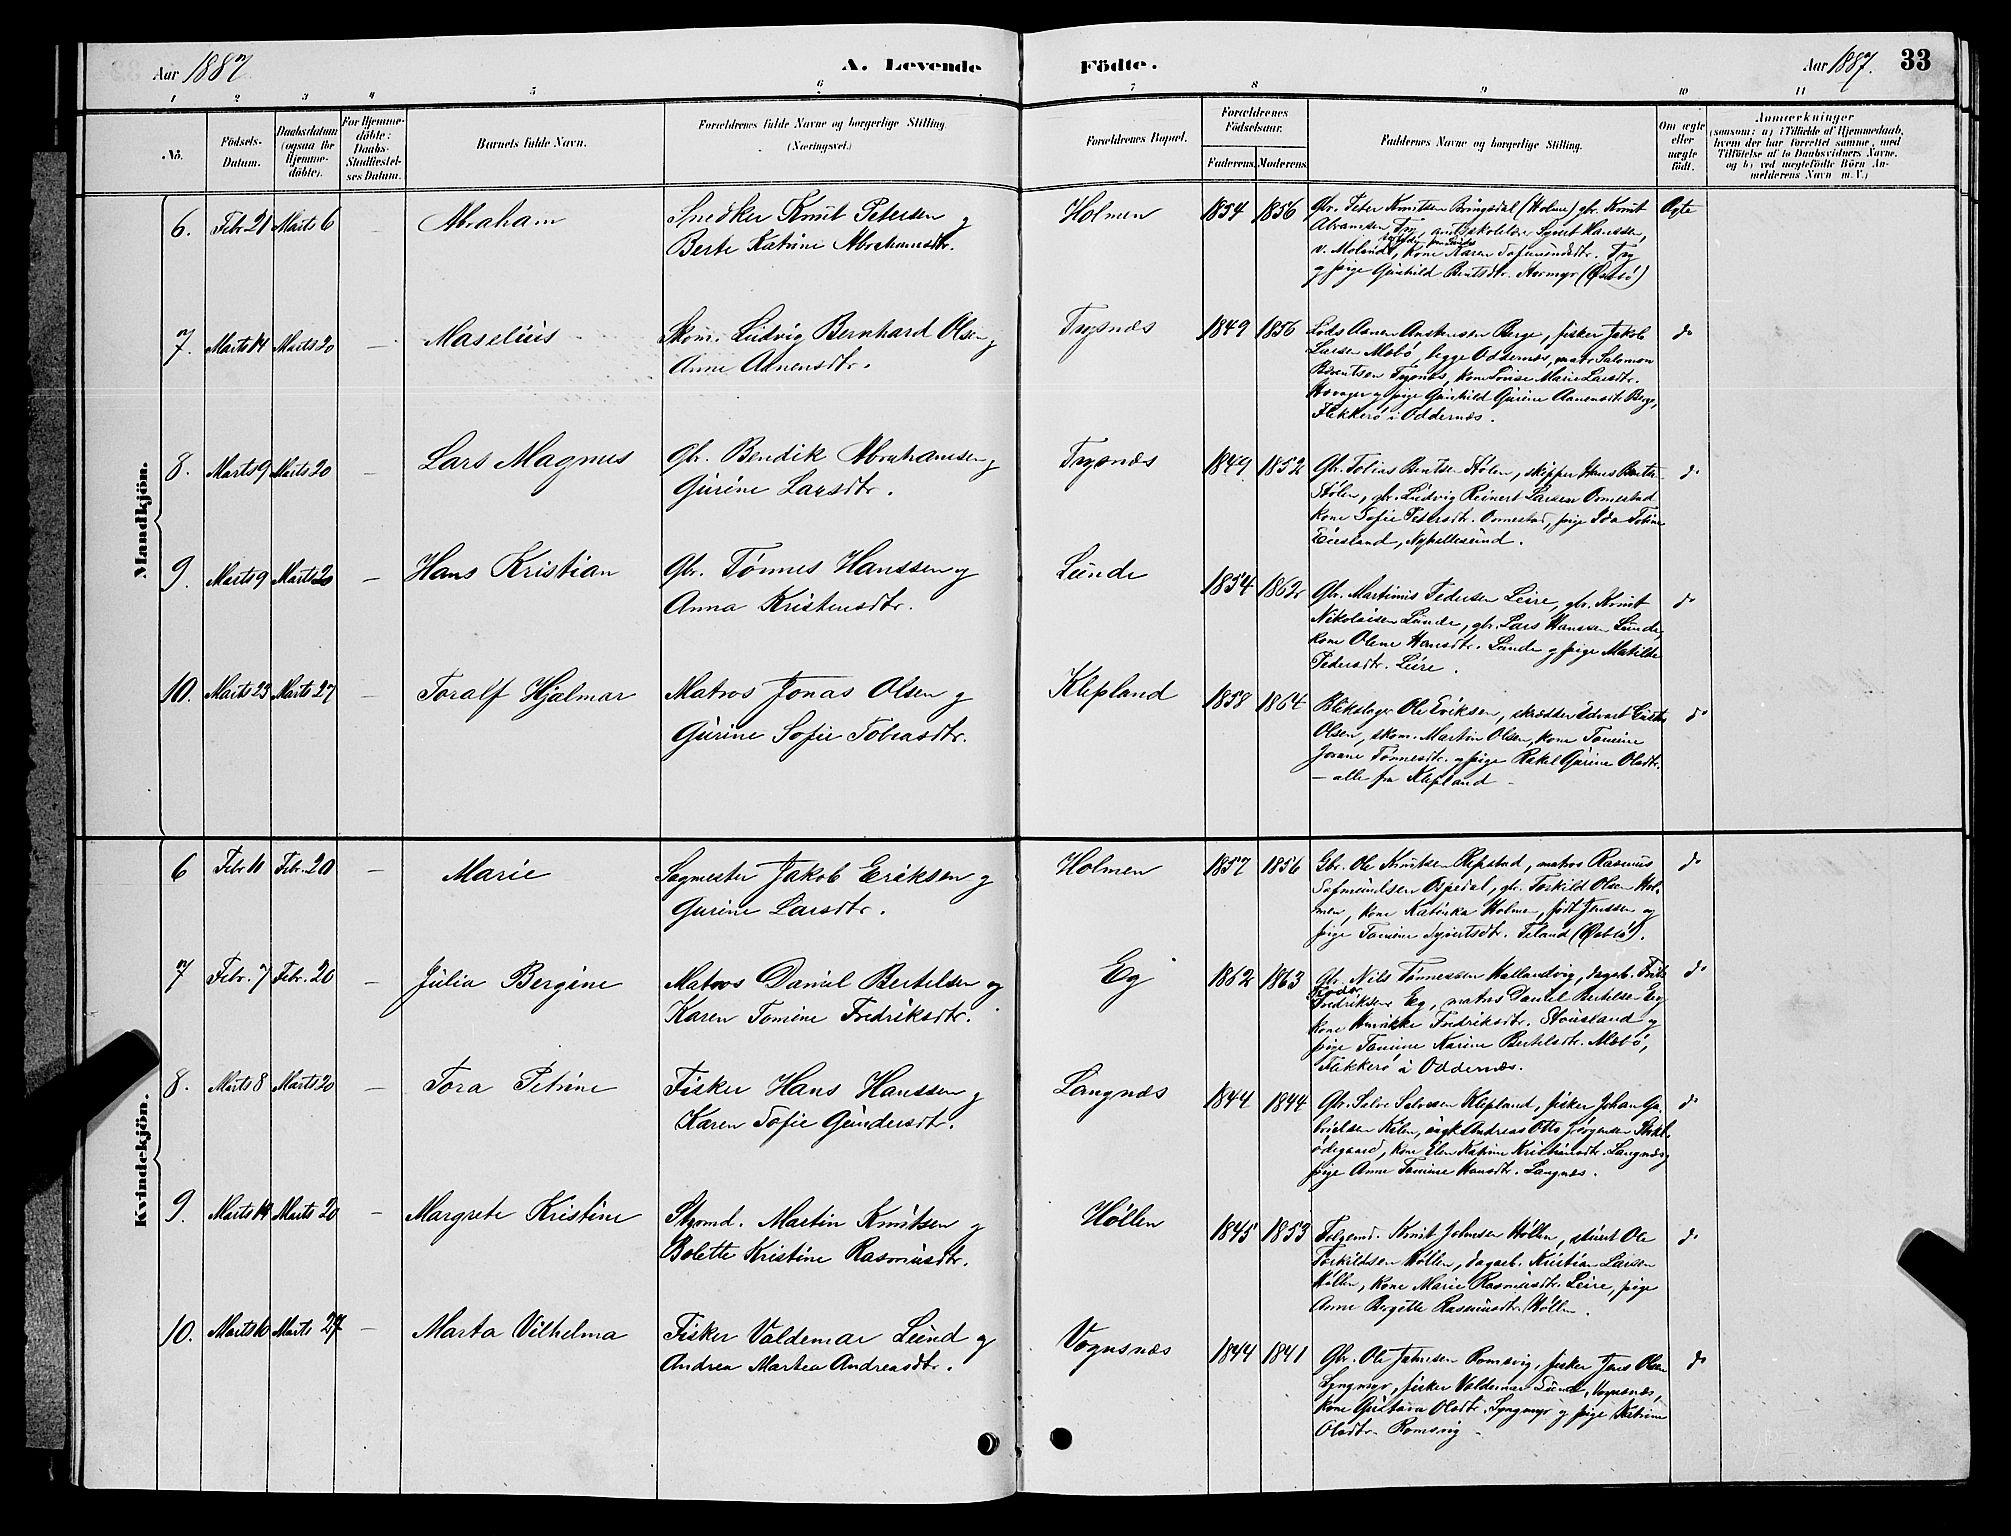 Aar 1887. A. Levende Födte. Aar 1887. 33
1 2 3 4 5 6 7 8 9 10 11
No.
Födsels-Datum.
Daabsdatum (ogsaa for Hjemme-döbte).
For Hjemme-döbte: Daabs-Stadfæstel-ses Datum.
Barnets fulde Navn.
Forældrenes fulde Navne og borgerlige Stilling. (Næringsvei.)
Forældrenes Bopæl.
Forældrenes Födselsaar.
Faderens. Moderens.
Faddernes Navne og borgerlige Stilling.
Om ægte eller uægte födt.
Anmærkninger
(saasom: a) i Tilfælde af Hjemmedaab,
hvem der har forrettet samme, med
Tilföielse af to Daabsvidners Navne,
og b) ved uægtefödte Börn An-
melderens Navn m. V.)
Mandkjön.
6. Febr. 21 Marts 6 — Abraham
Snedker Knut Petersen og
Berte Katrine Abrahamsdtr.
Holmen 1854 1856
Gbr. Peter Knutsen Bringsdal (Holme) gbr. Knut
Abramsen Try, Syvert Hanssen,
kone Karen Try
og pige Gunhild Bentsdtr. Stormyr (Øslebø)
Ægte
7. Marts 14 Marts 20 — Maselius
Skom. Ludvig Bernhard Olsen og
Anne Aanensdtr.
Trysnæs 1849 1856
Lods Aanen Berge, fisker Jakob
Larsen Mæbø, begge Oddernæs, matr. Salomon
Berntsen Trysnes, kone Lovise Marie Larsdtr.
og pige Gunhild Gurine Aanensdtr. Berge,
Flekkerø i Oddernæs.
do
8. Marts 9 Marts 20 — Lars Magnus
Gbr. Bendik Abrahamsen og
Gurine Larsdtr.
Trysnæs 1849 1852
Gbr. Tobias Bentsen Stølen, skipper Hans Bentsen
Stølen, gbr. Ludvig Reinert Larsen Omestad
kone Sofie Petersdtr. Omestad, pige Ida Tobine
Eiesland, Ny-Hellesund.
do
9. Marts 9 Marts 20 — Hans Kristian
Gbr. Tønnes Hanssen og
Anna Kristensdtr.
Lunde 1854 1862
Gbr. Martinius Pedersen Leire, gbr. Knut
Nikolaisen Lunde, gbr. Lars Hanssen Lunde,
kone Olene Hansdtr. Lunde og pige Matilde
Pedersdtr. Leire.
do
10. Marts 23 Marts 27 — Toralf Hjalmar
Matros Jonas Olsen og
Gurine Sofie Tobiasdtr.
Klepland 1858 1864
Blikslager Ole Eriksen, skrædder Edvart
Olsen, skom. Martin Olsen, kone Tomine
Jorane Tønnesdtr. og pige Rakel Gurine Olsdtr.
— alle fra Klepland —
do
Kvindekjön.
6 Febr. 10 Febr. 20 — Marie
Sagmester Jakob Eriksen og
Gurine Larsdtr.
Holmen 1857 1856
Gbr. Ole Knutsen Repstad, matros Rasmus
Sofmundsen Ospedal, gbr. Torkild Olsen Hol-
men, kone Katinka Holmen, født Jenssen og
pige Tomine Syvertsdtr. Teland (Øslebø).
do
7 Febr. 7 Febr. 20 — Julia Bergine
Matros Daniel Bertelsen og
Karen Tomine Fredriksdtr.
Eg 1862 1863
Gbr. Nils Tønnessen Hallandvig, dagarb.
Fredriksen Eg, matros Daniel Bertelsen Eg
kone Fredriksdtr. Stousland og
pige Tomine Karine Bertelsdtr. Mæbø,
Flekkerø i Oddernæs.
do
8. Marts 8 Marts 20 — Tora Petrine
Fisker Hans Hanssen og
Karen Sofie Gundersdtr.
Langnæs 1844 1844
Gbr. Salve Salvesen Klepland, fisker Johan Ga-
brielsen Kilen, Andreas Otto Jørgensen
ødegaard, kone Elen Katrine Kristiansdtr. Langnæs og
pige Anne Tomine Hansdtr. Langnæs.
do
9. Marts 14 Marts 20 — Margrete Kristine
Styrmd. Martin Knutsen og
Bolette Kristine Rasmusdtr.
Høllen 1845 1853
Følgemd. Knut Johnsen Høllen, stuert Ole
Torkildsen Høllen, dagarb. Kristian Larsen
Høllen, kone Marie Rasmusdtr. Leire, pige
Anne Bergitte Rasmusdtr. Høllen.
do
10. Marts 10 Marts 27 — Marta Vilhelma
Fisker Valdemar Lund og
Andrea Martea Andreasdtr.
Vognsnæs 1844 1841
Gbr. Ole Jahnsen Romsvig, fisker Jens Olsen
Lyngmyr, fisker Valdemar Lund, Vognsnæs,
kone Gustava Olsdtr. Lyngmyr og pige Katrine
Olsdtr. Romsvig —
do